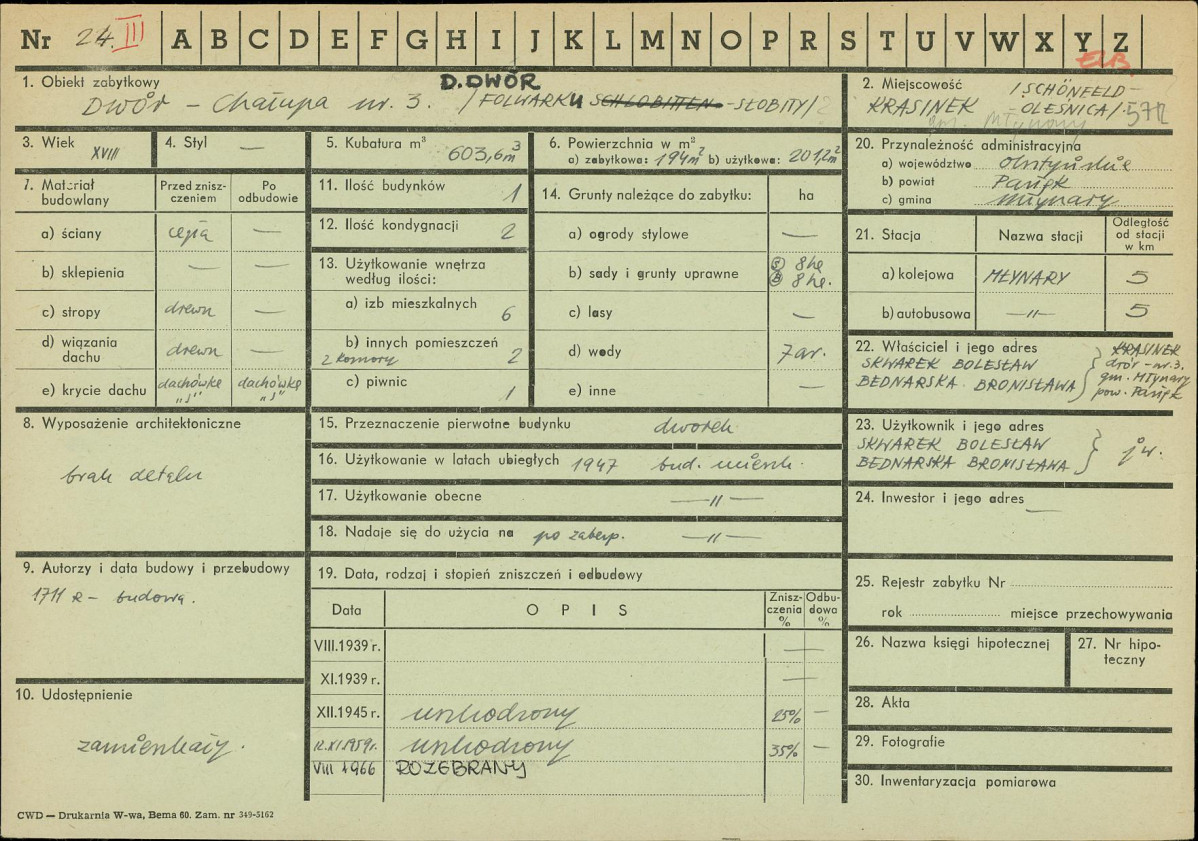 Nr 24. III A B C D E F G H I J K L M N O P R S T U V W X Y Z
ELB.
1. Obiekt zabytkowy D. DWÓR
DWÓR - Chałupa nr. 3. /FOLWARKU SCHLOBITTEN - SŁOBITY/
2. Miejscowość /SCHÖNFELD -
KRASINEK - OLEŚNICA/. 572
gm. Młynary
3. Wiek XVIII
4. Styl —
5. Kubatura m³ 603,6 m³
6. Powierzchnia w m²
a) zabytkowa: 194 m² b) użytkowa: 201,2 m²
7. Materiał budowlany
Przed zniszczeniem
Po odbudowie
a) ściany cegła —
b) sklepienia — —
c) stropy drewn —
d) wiązania dachu drewn —
e) krycie dachu dachówka „S" dachówka „S"
8. Wyposażenie architektoniczne
brak detalu
9. Autorzy i data budowy i przebudowy
1711 R - budowa.
10. Udostępnienie
zamieszkały.
11. Ilość budynków 1
12. Ilość kondygnacji 2
13. Użytkowanie wnętrza
według ilości:
a) izb mieszkalnych 6
b) innych pomieszczeń 2
2 komory
c) piwnic 1
14. Grunty należące do zabytku: ha
a) ogrody stylowe —
b) sady i grunty uprawne 8 ha
8 ha.
c) lasy —
d) wody 7 ar.
e) inne —
15. Przeznaczenie pierwotne budynku dworek
16. Użytkowanie w latach ubiegłych 1947 bud. mieszk.
17. Użytkowanie obecne — " —
18. Nadaje się do użycia na po zabezp. — " —
19. Data, rodzaj i stopień zniszczeń i odbudowy
Data O P I S Zniszczenia % Odbudowa %
VIII.1939 r. —
XI.1939 r. —
XII.1945 r. uszkodzony 25% —
12.XI.1959r. uszkodzony 35% —
VIII 1966 ROZEBRANY
20. Przynależność administracyjna
a) województwo olsztyńskie
b) powiat Pasłęk
c) gmina Młynary
21. Stacja Nazwa stacji Odległość od stacji w km
a) kolejowa MŁYNARY 5
b) autobusowa — " — 5
22. Właściciel i jego adres KRASINEK
SKWAREK BOLESŁAW dwór - nr. 3.
BEDNARSKA BRONISŁAWA gm. Młynary
pow. Pasłęk
23. Użytkownik i jego adres
SKWAREK BOLESŁAW
BEDNARSKA BRONISŁAWA j.w.
24. Inwestor i jego adres
—
25. Rejestr zabytku Nr
rok miejsce przechowywania
26. Nazwa księgi hipotecznej
27. Nr hipoteczny
28. Akta
29. Fotografie
30. Inwentaryzacja pomiarowa
CWD — Drukarnia W-wa, Bema 60. Zam. nr 349-5162